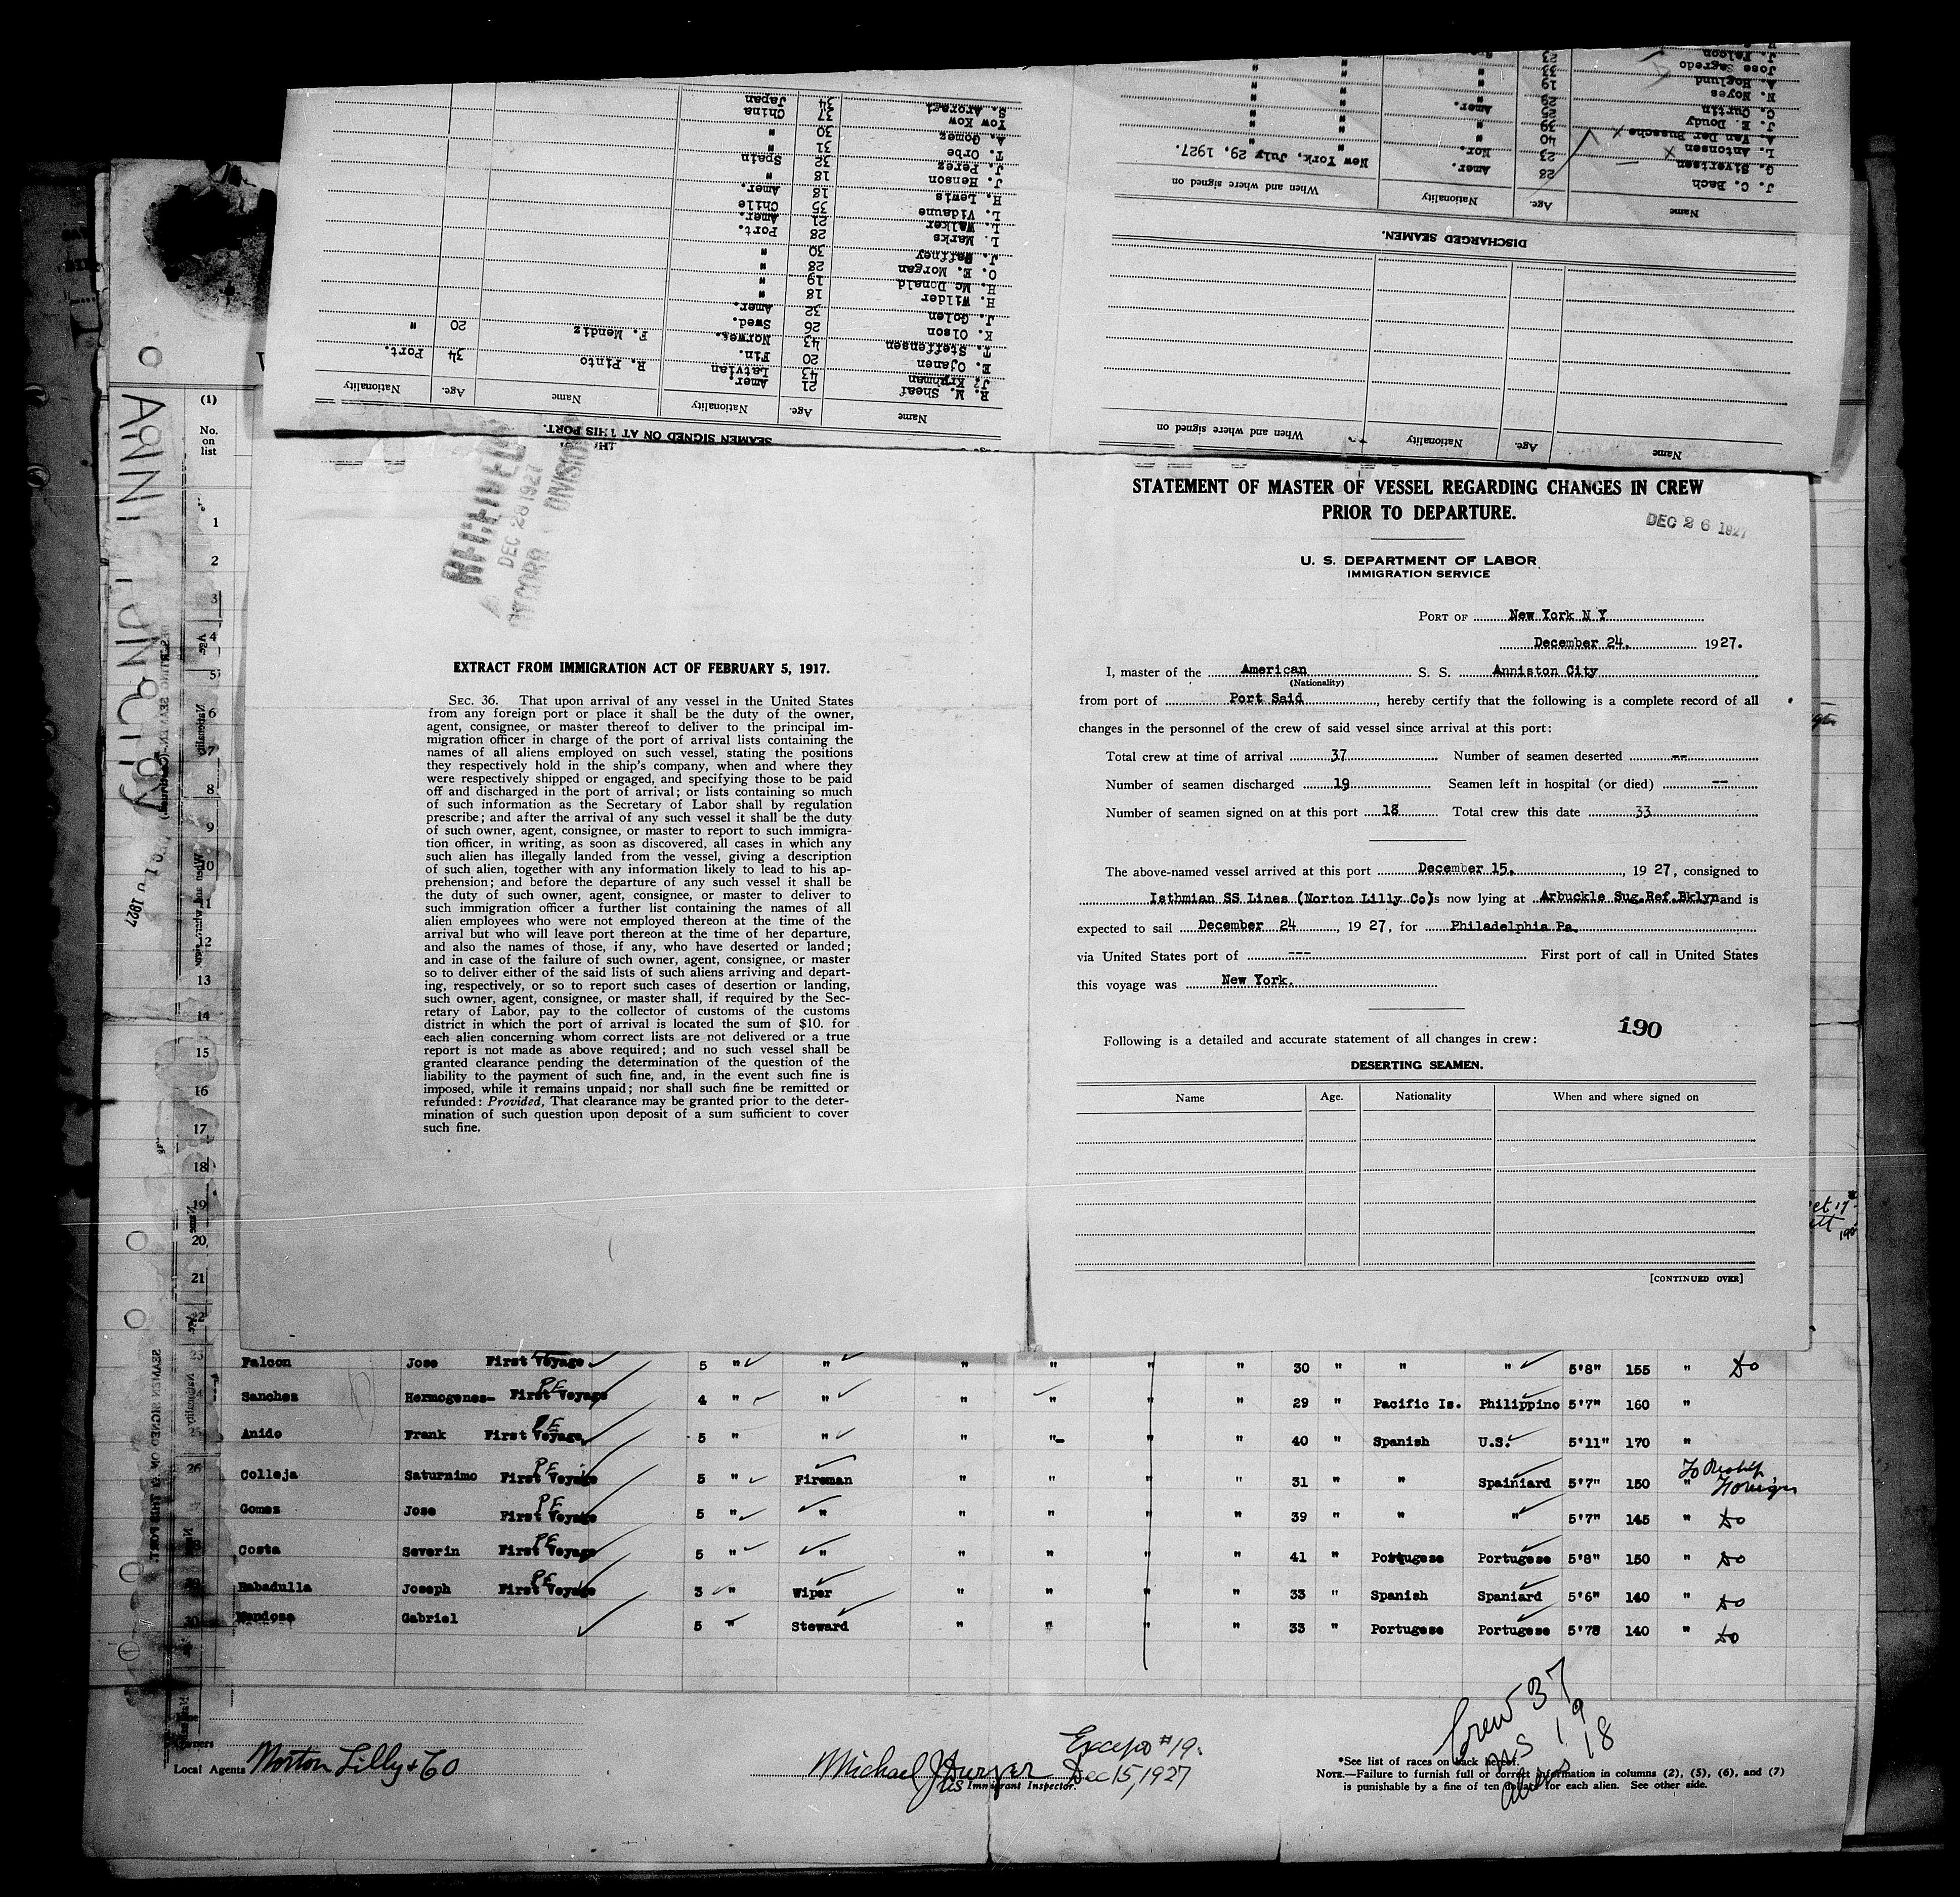 STATEMENT OF MASTER OF VESSEL REGARDING CHANGES IN CREW
PRIOR TO DEPARTURE.
DEC 26 1927
U. S. DEPARTMENT OF LABOR
IMMIGRATION SERVICE
PORT OF New York N Y
December 24, 1927.
I, master of the American S. S. Anniston City
(Nationality)
from port of Port Said, hereby certify that the following is a complete record of all
changes in the personnel of the crew of said vessel since arrival at this port:
Total crew at time of arrival 37 Number of seamen deserted --
Number of seamen discharged 19 Seamen left in hospital (or died) --
Number of seamen signed on at this port 18 Total crew this date 33
The above-named vessel arrived at this port December 15, 1927, consigned to
Isthmian SS Lines (Norton Lilly Co) is now lying at Arbuckle Sug.Ref.Bklyn and is
expected to sail December 24, 1927, for Philadelphia Pa.
via United States port of --- First port of call in United States
this voyage was New York.
190
Following is a detailed and accurate statement of all changes in crew:
DESERTING SEAMEN.
Name Age. Nationality When and where signed on
[CONTINUED OVER]
RECEIVED
DEC 28 1927
RECORD DIVISION
EXTRACT FROM IMMIGRATION ACT OF FEBRUARY 5, 1917.
SEC. 36. That upon arrival of any vessel in the United States
from any foreign port or place it shall be the duty of the owner,
agent, consignee, or master thereof to deliver to the principal im-
migration officer in charge of the port of arrival lists containing the
names of all aliens employed on such vessel, stating the positions
they respectively hold in the ship's company, when and where they
were respectively shipped or engaged, and specifying those to be paid
off and discharged in the port of arrival; or lists containing so much
of such information as the Secretary of Labor shall by regulation
prescribe; and after the arrival of any such vessel it shall be the duty
of such owner, agent, consignee, or master to report to such immigra-
tion officer, in writing, as soon as discovered, all cases in which any
such alien has illegally landed from the vessel, giving a description
of such alien, together with any information likely to lead to his ap-
prehension; and before the departure of any such vessel it shall be
the duty of such owner, agent, consignee, or master to deliver to
such immigration officer a further list containing the names of all
alien employees who were not employed thereon at the time of the
arrival but who will leave port thereon at the time of her departure,
and also the names of those, if any, who have deserted or landed;
and in case of the failure of such owner, agent, consignee, or master
so to deliver either of the said lists of such aliens arriving and depart-
ing, respectively, or so to report such cases of desertion or landing,
such owner, agent, consignee, or master shall, if required by the Sec-
retary of Labor, pay to the collector of customs of the customs
district in which the port of arrival is located the sum of $10. for
each alien concerning whom correct lists are not delivered or a true
report is not made as above required; and no such vessel shall be
granted clearance pending the determination of the question of the
liability to the payment of such fine, and, in the event such fine is
imposed, while it remains unpaid; nor shall such fine be remitted or
refunded: Provided, That clearance may be granted prior to the deter-
mination of such question upon deposit of a sum sufficient to cover
such fine.
Name Age. Nationality When and where signed on
DISCHARGED SEAMEN.
Name Age. Nationality When and where signed on
J. C. Bach 28 Amer. New York, July 29, 1927.
G. Sivertsen 23 Nor. " "
L. Antonsen 40 " " "
A. Van Der Bussche 39 " "
J. E. Doudy 25 Amer. " "
C. Curtin 29 " "
N. Noyes 19 " "
A. Hoglund 33
Jose Sagredo 23
J. Falcon
SEAMEN SIGNED ON AT THIS PORT.
Name Age. Nationality Name Age. Nationality
R. M. Sheaf 21 Amer. R. Pinto 34 Port.
J. Kruhman 43 Latvian F. Mendiz 20 "
E. Ojanen 20 Fin.
T. Steffensen 43 Norweg.
K. Olson 26 Swed.
J. Golen 32 Amer.
H. Wilder 18 "
H. Mc Donald 19 "
O. E. Morgan 28 "
J. Gaffney 30 "
L. Marks 28 Port.
L. Walker 21 Amer.
L. Vidaune 35 Chile
H. Lewis 18 Amer.
J. Henson 18 "
J. Perez 32 Spain
T. Orbe 31 "
A. Gomez 30 "
Yow Kow 37 China
S. Aroragi 34 Japan
(1)
No.
on
list
ANNISTON CITY
1
2
3
4
5
6
7
8
9
10
11
12
13
14
15
16
17
18
19
20
21
Falcon Jose First Voyage 5 " " " " " " 30 " " " 5'8" 155 " Do
Sanchez Hermogenes- PE First Voyage 4 " " " " " " 29 " Pacific Is. Philippino 5'7" 160 "
Anido Frank PE First Voyage 5 " " " " " " 40 " Spanish U.S. 5'11" 170 "
26 Colleja Saturnimo PE First Voyage 5 " Fireman " " " " 31 " " Spainiard 5'7" 150 " To Reship Foreign
Gomez Jose PE First Voyage 5 " " " " " " 39 " " " 5'7" 145 " Do
Costa Severin PE First Voyage 5 " " " " " " 41 " Portugese Portugese 5'8" 150 " Do
Rabadulla Joseph PE First Voyage 3 " Wiper " " " " 33 " Spanish Spaniard 5'6" 140 " Do
30 Mendoza Gabriel 5 " Steward " " " " 33 " Portugese Portugese 5'7" 140 " Do
Crew 37
US 19
Aliens 18
Owners
Local Agents Norton Lilly & Co
Except #19.
Dec 15, 1927
US Immigrant Inspector.
*See list of races on back hereof.
NOTE.—Failure to furnish full or correct information in columns (2), (5), (6), and (7)
is punishable by a fine of ten dollars for each alien. See other side.